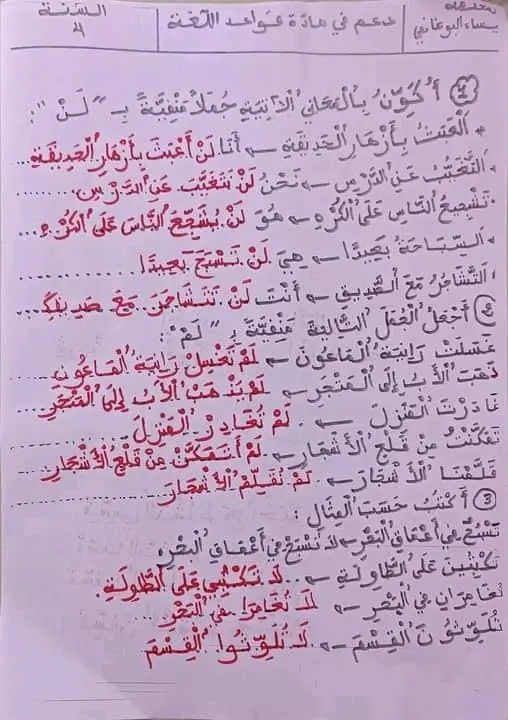 معلمته
يساء البوغانمي
دعم في مادة قواعد اللغة
السنة
4
① أُكَوِّنُ بِالْمَعَانِي الْآتِيَةِ جُمَلًا مَنْفِيَّةً بِـ "لَنْ":
* الْعَبَثُ بِأَزْهَارِ الْحَدِيقَةِ ← أَنَا لَنْ أَعْبَثَ بِأَزْهَارِ الْحَدِيقَةِ...
* التَّغَيُّبُ عَنِ الدَّرْسِ ← نَحْنُ لَنْ نَتَغَيَّبَ عَنِ الدَّرْسِ.........
* تَشْجِيعُ النَّاسِ عَلَى الْكُرْهِ ← هُوَ لَنْ يُشَجِّعَ النَّاسَ عَلَى الْكُرْهِ...
* السِّبَاحَةُ بَعِيدًا ← هِيَ لَنْ تَسْبَحَ بَعِيدًا.........
* التَّشَاجُرُ مَعَ الصَّدِيقِ ← أَنْتَ لَنْ تَتَشَاجَرَ مَعَ صَدِيقِكَ...
② أَجْعَلُ الْجُمَلَ التَّالِيَةَ مَنْفِيَّةً بِـ "لَمْ":
غَسَلَتْ رَانِيَةُ الْمَاعُونَ ← لَمْ تَغْسِلْ رَانِيَةُ الْمَاعُونَ......
ذَهَبَ الْأَبُ إِلَى الْمَتْجَرِ ← لَمْ يَذْهَبْ الْأَبُ إِلَى الْمَتْجَرِ...
غَادَرْتَ الْمَنْزِلَ ← لَمْ تُغَادِرْ الْمَنْزِلَ.........
تَمَكَّنْتُ مِنْ قَلْعِ الْأَشْجَارِ ← لَمْ أَتَمَكَّنْ مِنْ قَلْعِ الْأَشْجَارِ
قَلَّمْنَا الْأَشْجَارَ ← لَمْ نُقَلِّمْ الْأَشْجَارَ.........
③ أَكْتُبُ حَسَبَ الْمِثَالِ:
تَسْبَحُ فِي أَعْمَاقِ الْبَحْرِ ← لَا تَسْبَحْ فِي أَعْمَاقِ الْبَحْرِ
تَكْتُبِينَ عَلَى الطَّاوِلَةِ ← ... لَا تَكْتُبِي عَلَى الطَّاوِلَةِ.
تُغَامِرَانِ فِي الْبَحْرِ ← لَا تُغَامِرَا فِي الْبَحْرِ...
تُلَوِّثُونَ الْقِسْمَ ← لَا تُلَوِّثُوا الْقِسْمَ